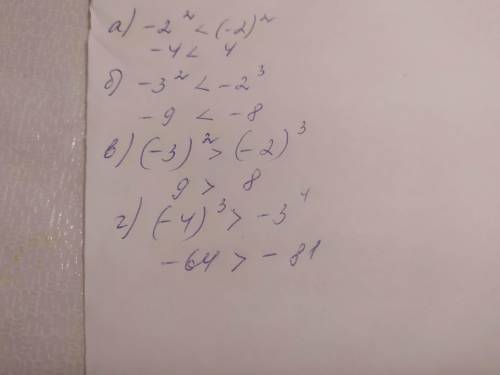 а) -2² < (-2)²
-4 < 4
б) -3² < -2³
-9 < -8
в) (-3)² > (-2)³
9 > 8
г) (-4)³ > -3⁴
-64 > -81